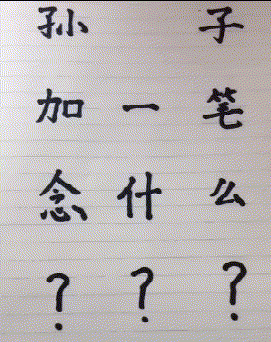 孙子
加一笔
念什么
？？？